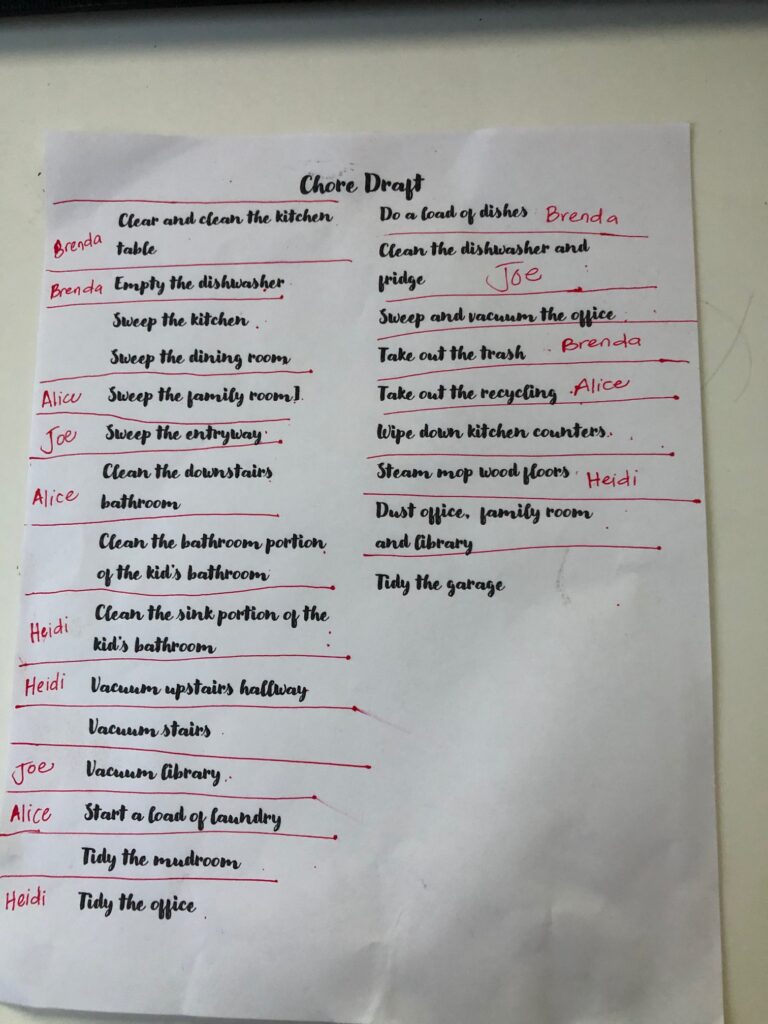 Chore Draft
Clear and clean the kitchen
Brenda table
Brenda Empty the dishwasher
Sweep the kitchen
Sweep the dining room
Alice Sweep the family room]
Joe Sweep the entryway
Clean the downstairs
Alice bathroom
Clean the bathroom portion
of the kid's bathroom
Clean the sink portion of the
Heidi kid's bathroom
Heidi Vacuum upstairs hallway
Vacuum stairs
Joe Vacuum library
Alice Start a load of laundry
Tidy the mudroom
Heidi Tidy the office
Do a load of dishes Brenda
Clean the dishwasher and
fridge Joe
Sweep and vacuum the office
Take out the trash Brenda
Take out the recycling Alice
Wipe down kitchen counters
Steam mop wood floors Heidi
Dust office, family room
and library
Tidy the garage